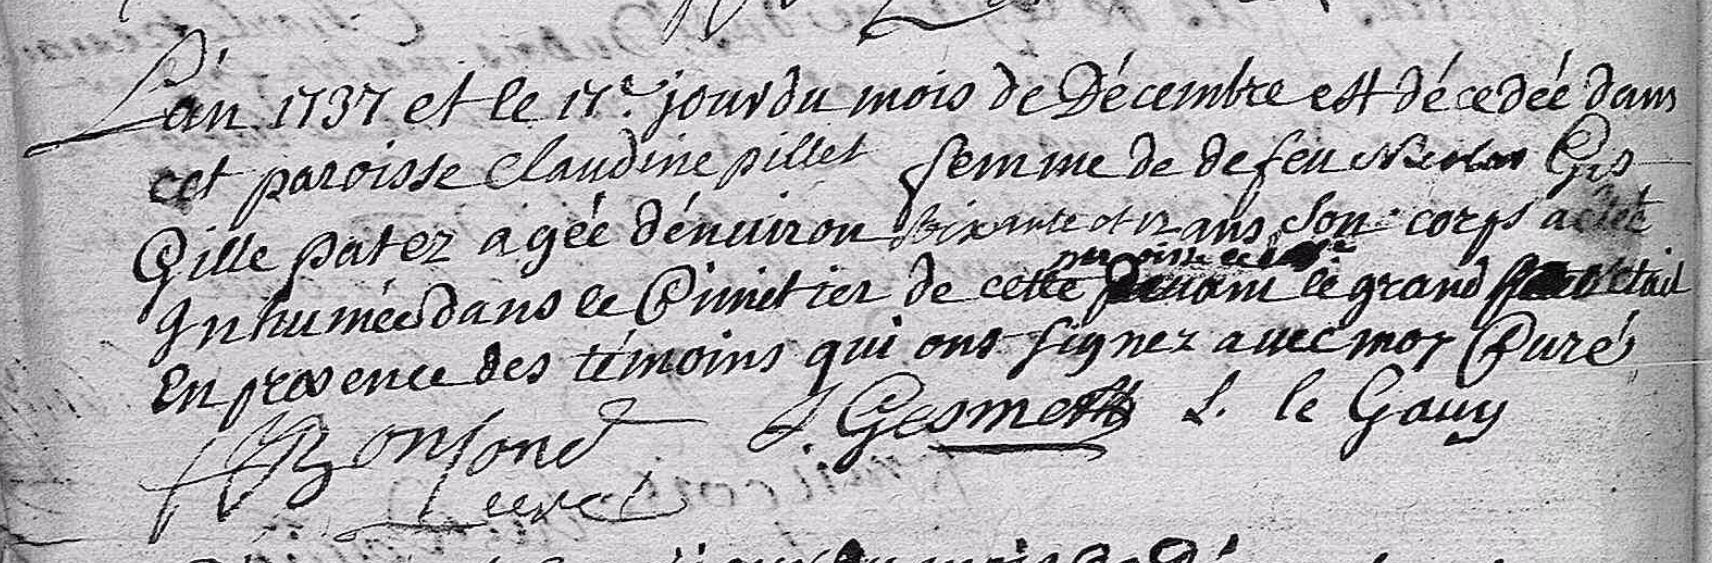 L'an 1737 et le 17e jour du mois de Décembre est décedée dans
cet paroisse Claudine pillet femme de defeu Nicolas
Gille patez agée d'enuiron soixante et 12 ans Son corps a été
Inhumée dans le Cimetier de cette le grand
En presence des témoins qui ons signez auec moy Curé
Bonfond J. Gesmett L. le Gauy